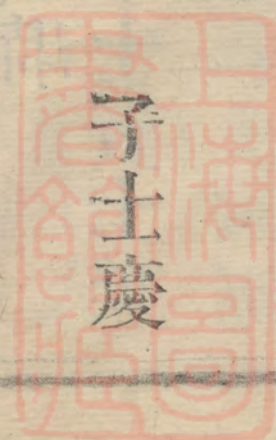 子士慶
上海圖
書館藏